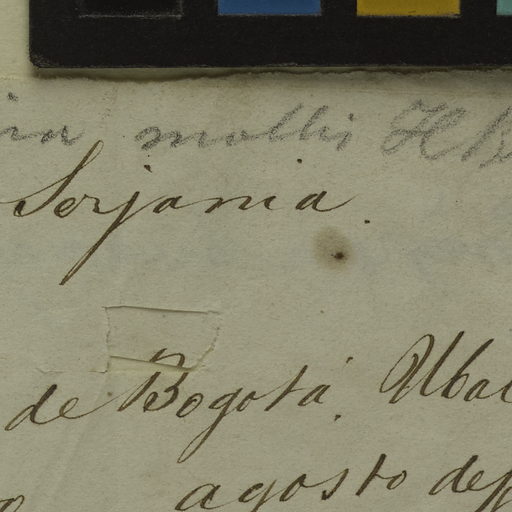 mollis HB
Serjania.
de Bogotá. Uba
agosto de